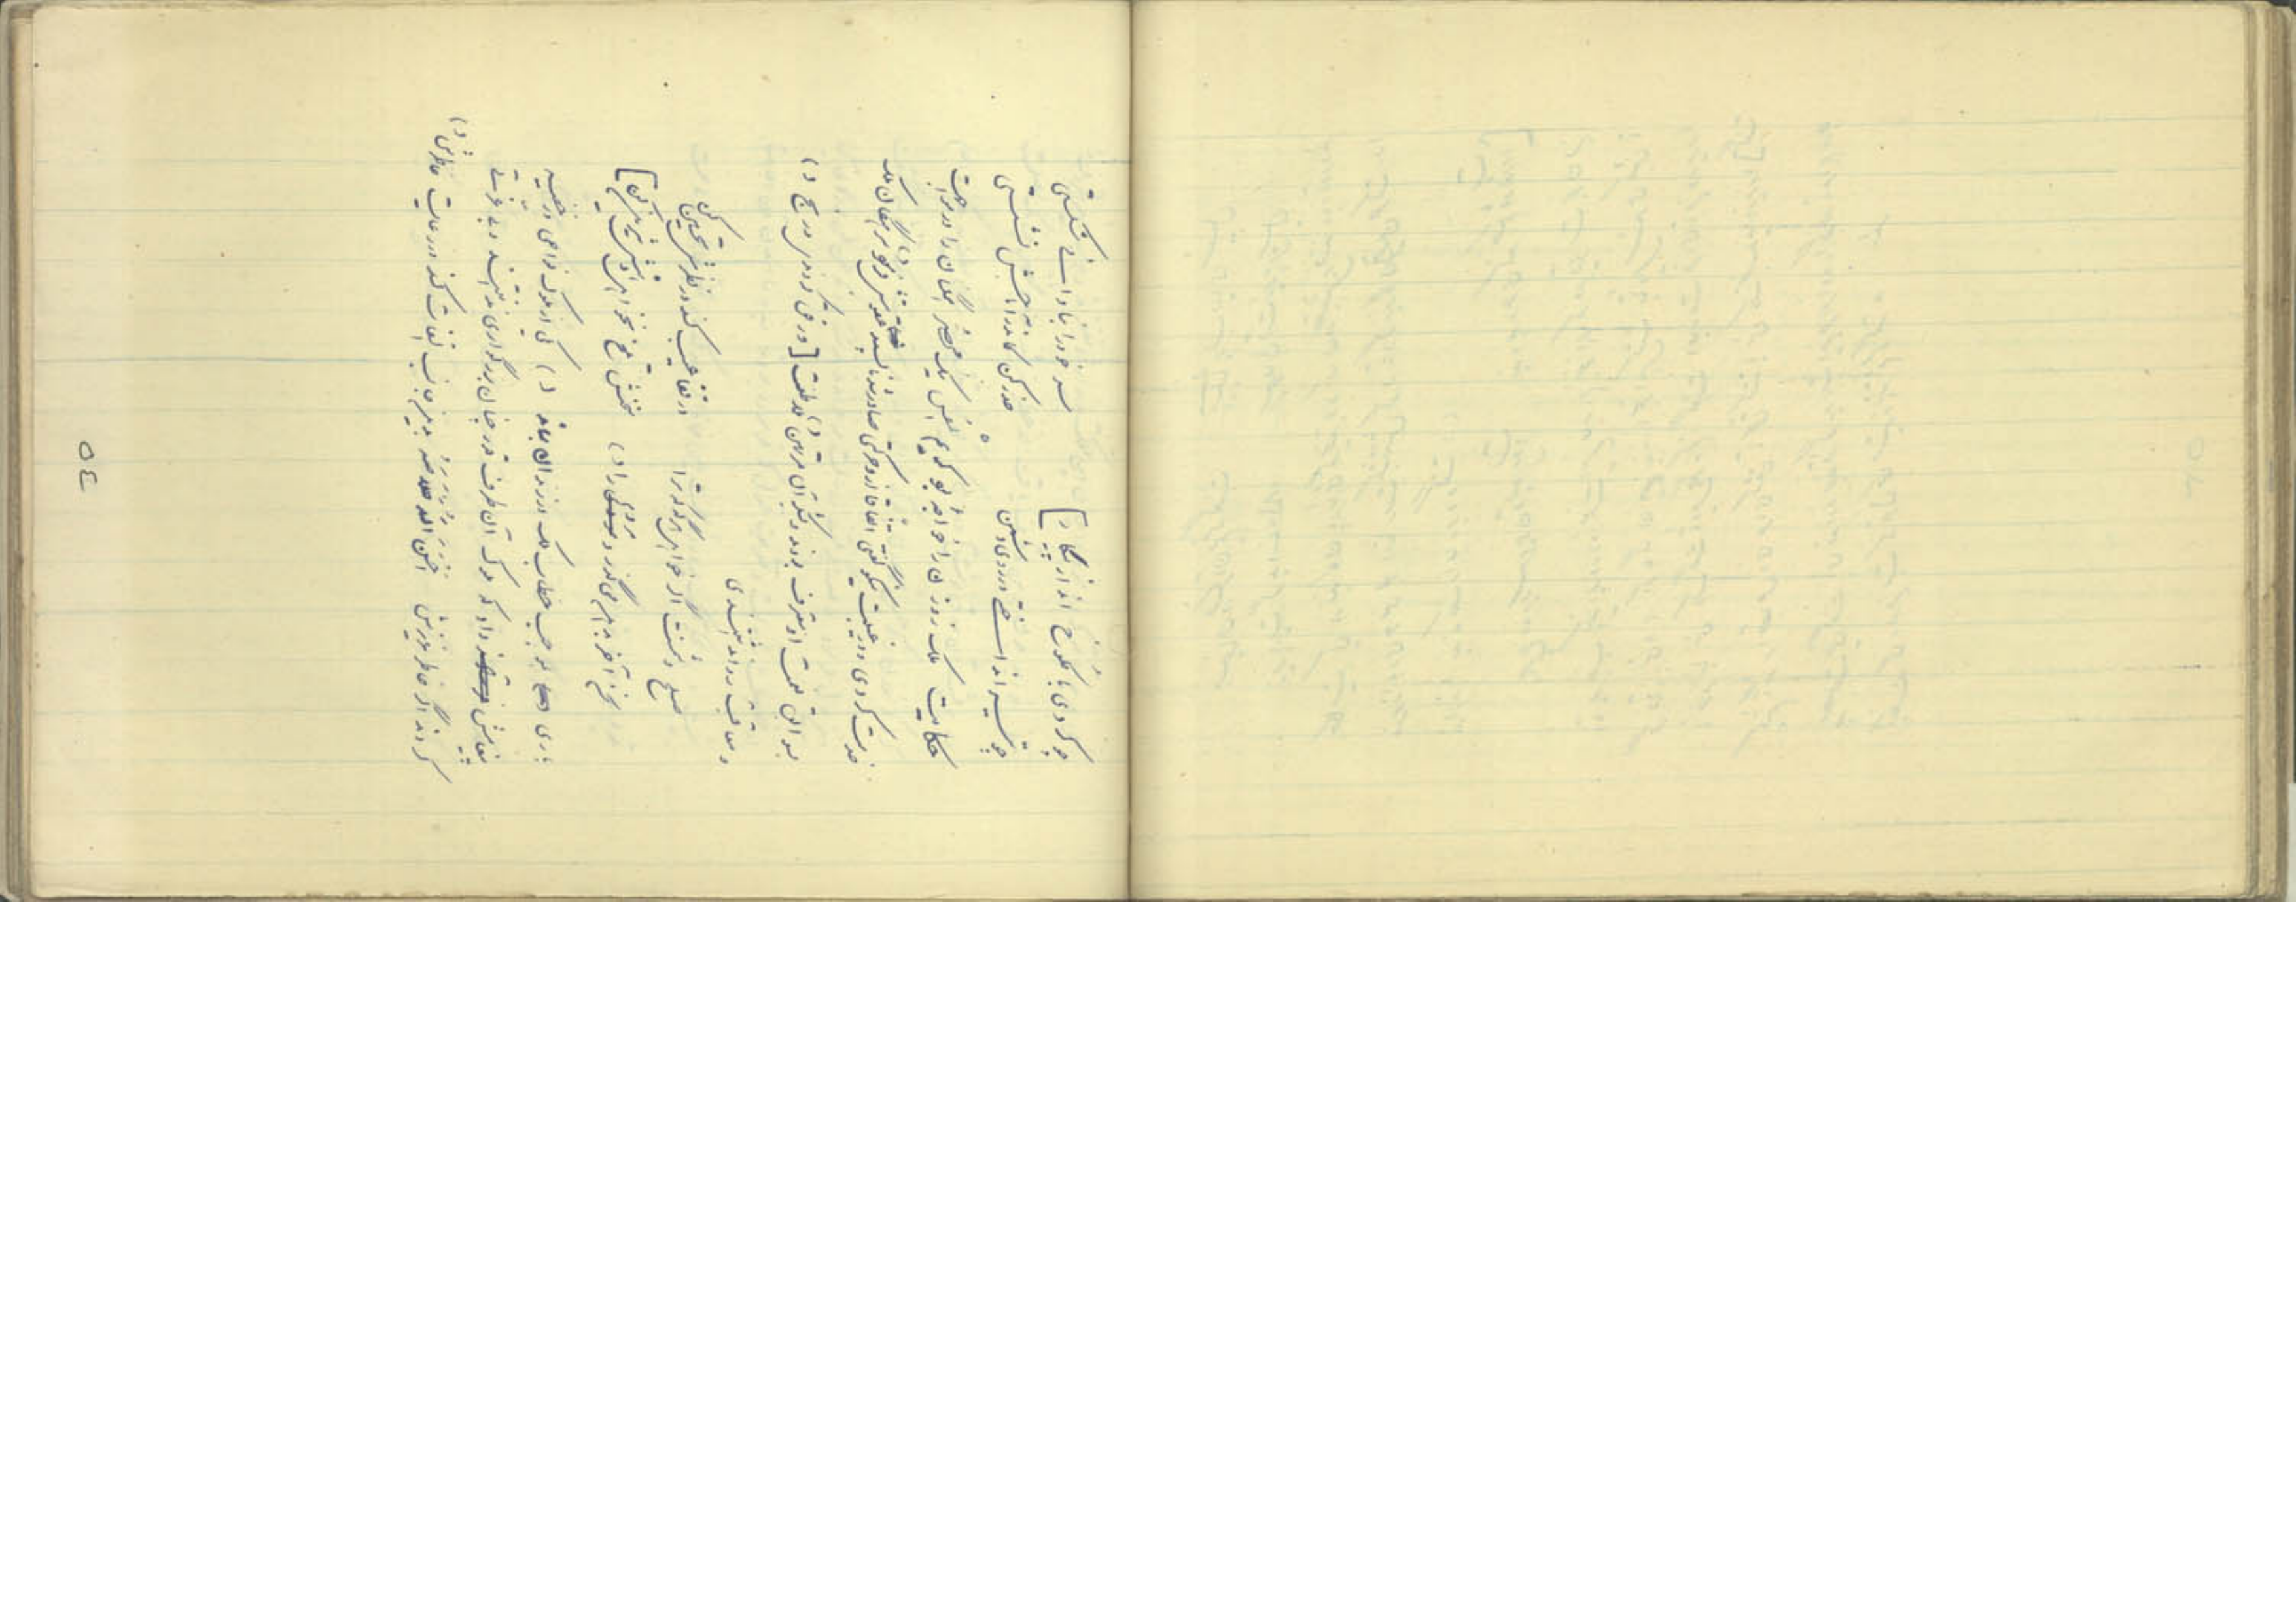 چو کردی با کلوخ انداز پیکار] سر خود را بنادانی شکستی
چو تیر انداختی در روی دشمن حذر کن کاندر آماجش نشستی
حکایت ملک زوزن را خواجه بود کریم النفس نیک محضر همگان را در مواجهت
خدمت کردی و در غیبت نکو گفتی اتفاقا ازو حرکتی صادر شد ناپسندیده (د) سرهنگان ملک
بسوابق نعمت او معترف بودند و بشکر آن مرتهن (د) ملاطفت [و رفق کردندی (د)
و معاقبت روا نداشتندی
صلح دشمنت اگر خواهی هرگه که ترا در قفا عیب کند در نظرش تحسین کن
سخن آخر بدهن میگذرد موذی را (د) سخنش تلخ نخواهی دهنش شیرین کن]
باری موجب خطاب ملک (د) یکی از ملوک نواحی در خفیه
پیغامش فرستاد که ملوک آن طرف قدر چنان بزرگواری ندانستند و بی عزتی
کردند اگر خاطر عزیزش احسن الله خلاصه بجانب التفات کند در رعایت خاطرش (د)
٥٤